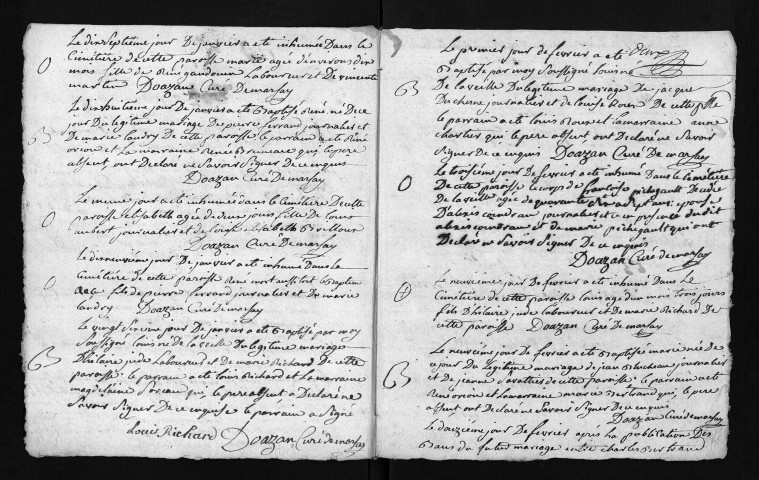 Le dix septième jour De janvier a eté inhumée Dans le
Cimétière de cette paroisse marie agée d'environs dix
mois fille de René gaudouin Laboureur et De
martin Doazan Curé De marsay
Le dixhuitieme jour De janvier a eté Baptisé René, né De ce
jour Du legitime mariage De pierre ferrand journalier et
De marie landry De cette paroisse le parrain a eté René
oriou et La marraine Renée qui, le pere
absent, ont Declaré ne Savoir Signer De ce enquis
Doazan Curé De marsay
Le meme jour a eté inhumée dans le Cimétière De cette
paroisse elisabeth agée de deux jours fille De louis
aubert journalier et de elisabeth
Doazan Curé De marsay
Le dixneuvieme jour De janvier a eté inhumé Dans Le
Cimétière de cette paroisse René mort aussitot Baptisé
fils de pierre ferrand journalier et De marie
landry Doazan Curé De marsay
Le vingt jour De janvier a eté Baptisé par moy
Soussigné louis né De la veille Du legitime mariage
D'hilaire jude Laboureur et De marie Richard De cette
paroisse le parrain a eté louis Richard et La marraine
magdelaine qui, le pere absent a Declaré ne
Savoir Signer De ce enquise le parrain a Signé
Louis Richard Doazan Curé de marsay
Le premier jour de fevrier a eté
Baptisé par moy Soussigné
De la veille Du legitime mariage De jacque
Duchesne journalier et de louise De cette psse
le parrain a eté louis et la marraine anne
chartier qui, le pere absent ont Declaré ne Savoir
Signer De ce enquis Doazan Curé De marsay
Le troisieme jour De fevrier a eté inhumé Dans le Cimetiere
De cette paroisse le corps de françoise pichegault Decedée
De la veille agée de quarante ans epouse
D'alexis coindrau journalier et ce en presence du dit
alexis coindrau et de marie pichegault qui ont
Declaré ne Savoir Signer De ce enquis
Doazan Curé De marsay
Le neuvieme jour De fevrier a eté inhumé Dans Le
Cimetiere de cette paroisse louis agé d'un mois trois jours
fils D'hilaire jude laboureur et De marie Richard De
cette paroisse Doazan Curé De marsay
Le neuvième jour De fevrier a eté Baptisée marie née De
ce jour Du Legitime mariage de jean journalier
et De jeanne Savattier de cette paroisse le parrain a eté
René oriou et la marraine marie Bertrand qui, le pere
absent ont Declaré ne Savoir Signer De ce enquis
Doazan Curé De marsay
Le douzième jour De fevrier après la publication Des
Bans du futur mariage entre charles